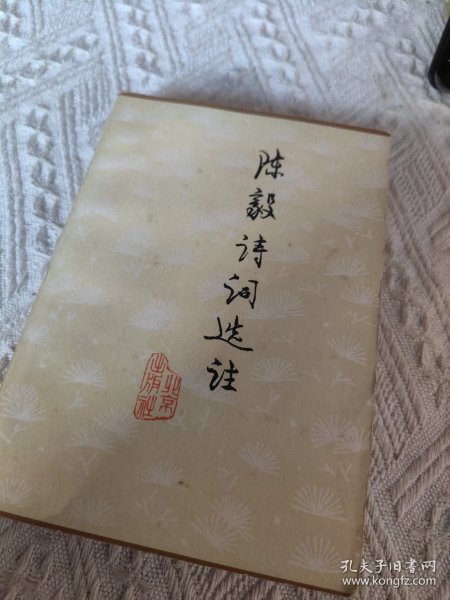 陈毅诗词选註
北京
出版社
孔夫子旧书网
www.kongfz.com